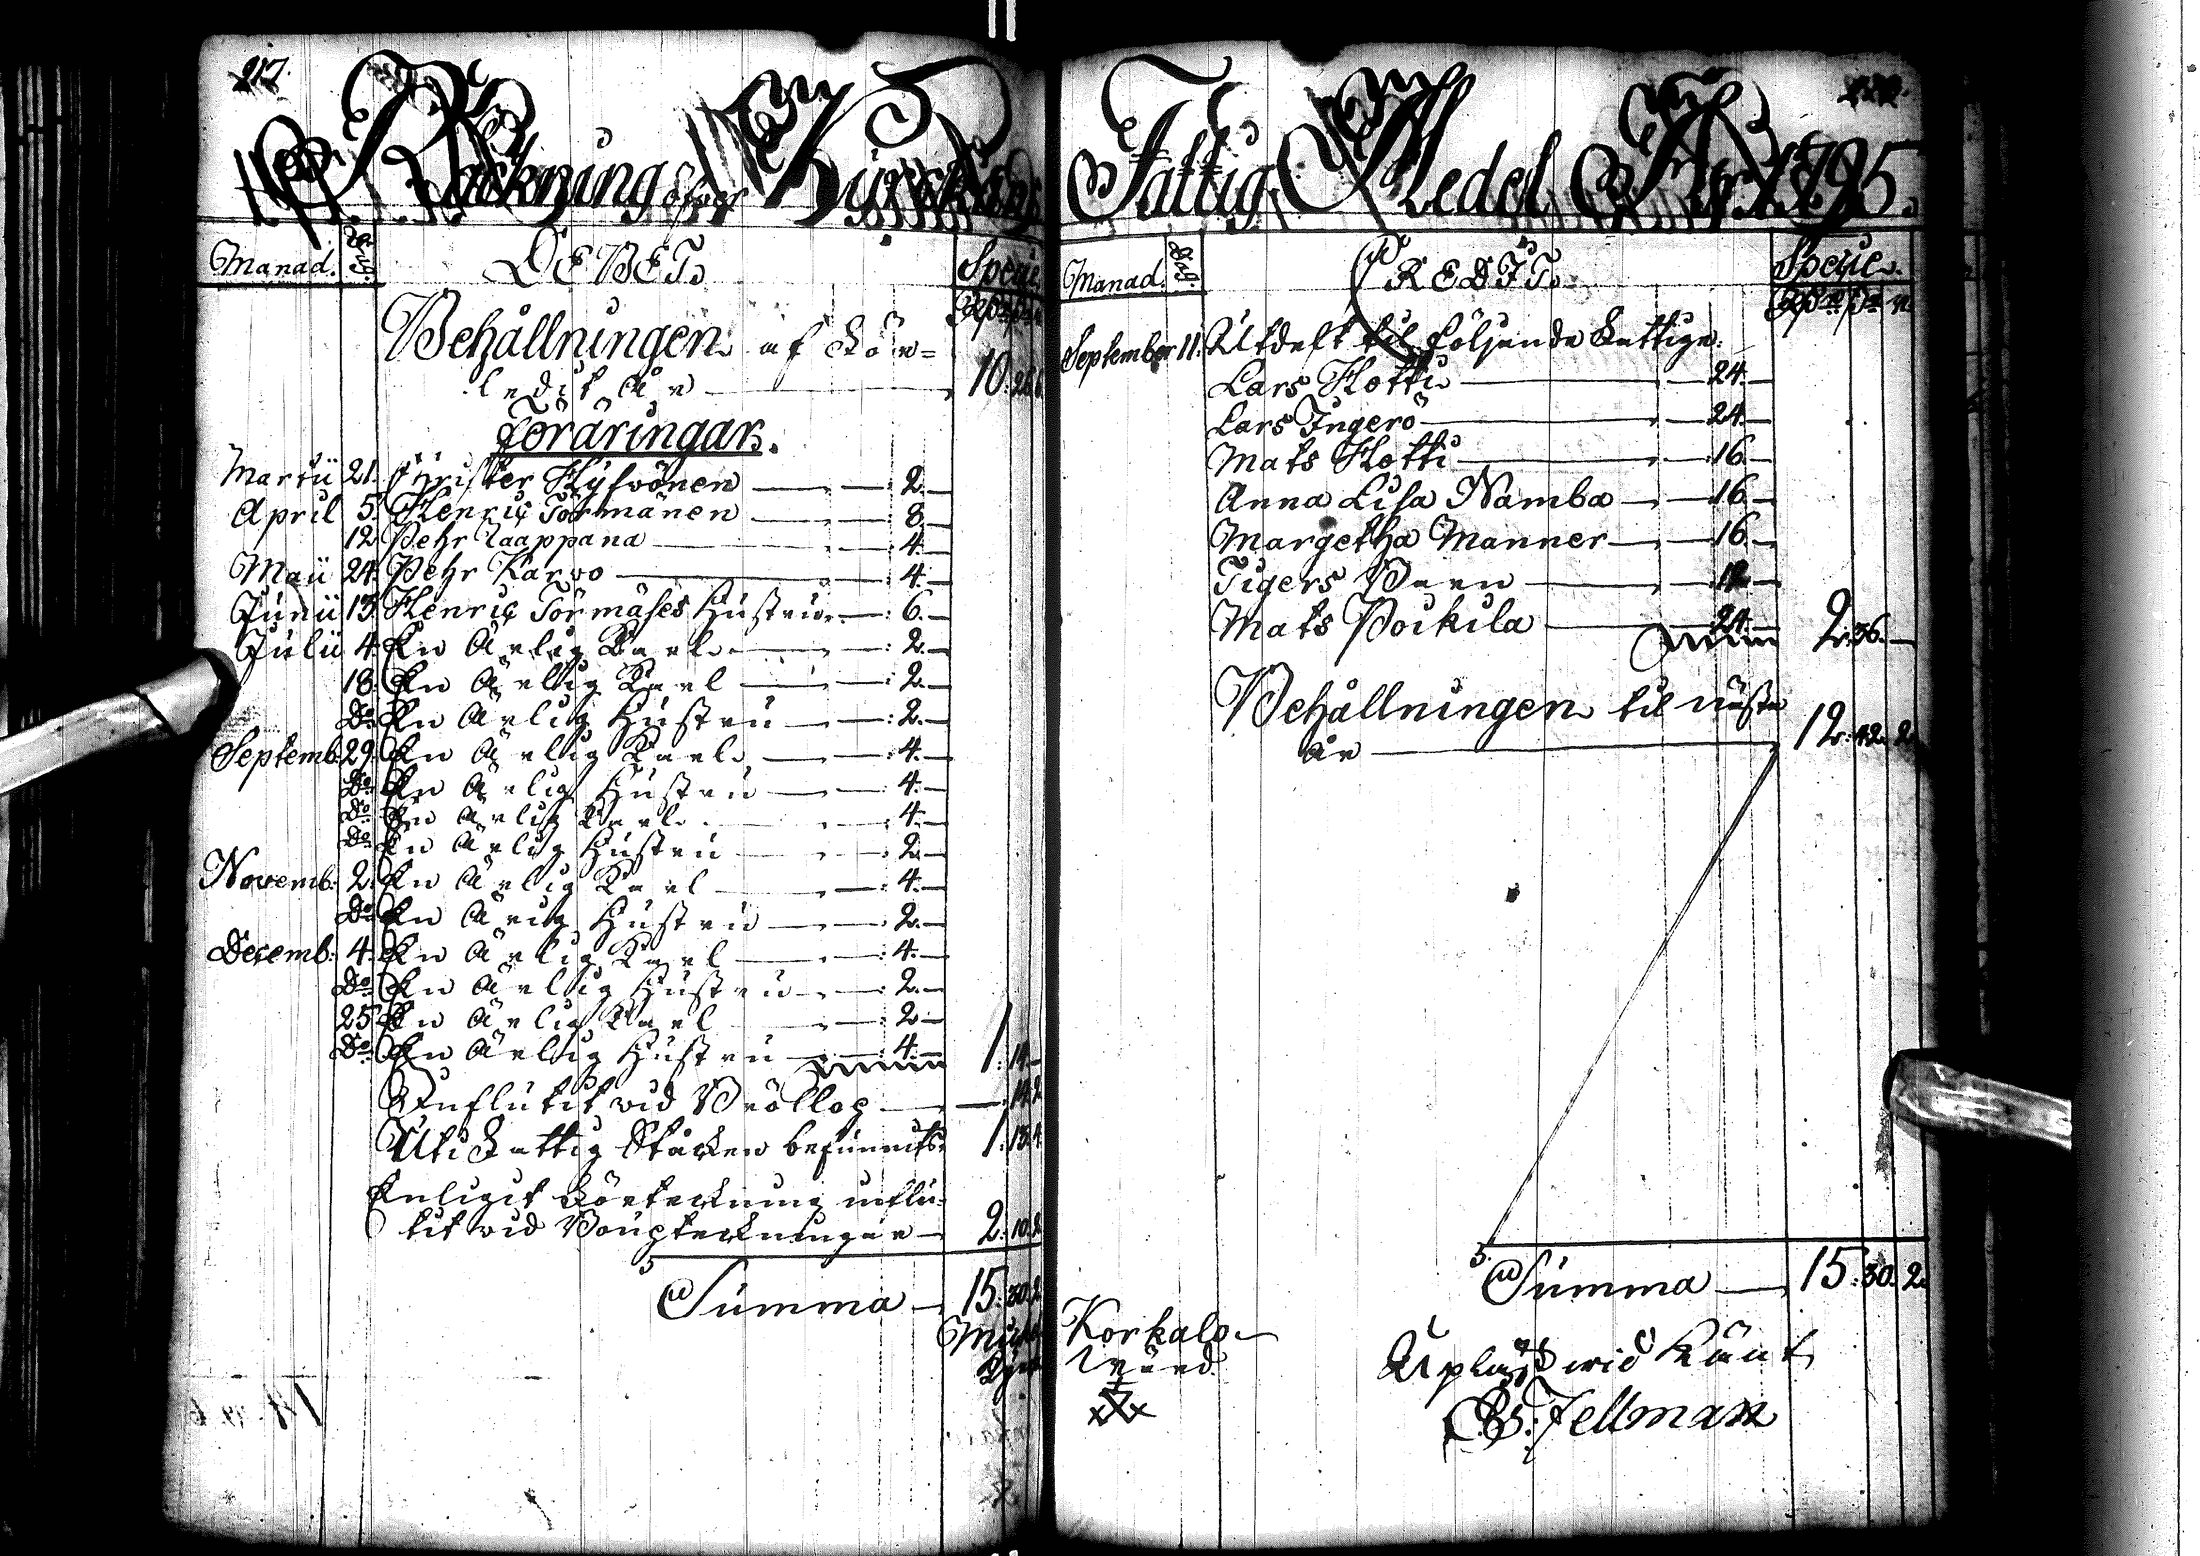 217.
Räckning öfver Kyrckans
Månad. Dag. DEBET. Specie
Behållningen af för-
ledit År 10: 26.
Föräringar.
Martii 21. Christer Hyfvönen — 2.
April 5. Henric Törmänen — 8.
12 Pehr Laappana — 4.
Maii 24. Pehr Karvo — 4.
Junii 13. Henric Törmäses Hustru — 6.
Julii 4. En Ärlig Karl — 2.
18. En Ärlig Karl — 2.
Do En Ärlig Hustru — 2.
Septemb: 29. En Ärlig Karl — 4.
Do En Ärlig Hustru — 4.
Do En Ärlig Karl — 4.
Do En Ärlig Hustru — 2.
Novemb: 2. En Ärlig Karl — 4.
Do En Ärlig Hustru — 2.
Decemb: 4. En Ärlig Karl — 4.
Do En Ärlig Hustru — 2.
25. En Ärlig Karl — 2.
Do En Ärlig Hustru — 4. 1: 14.
Influtit vid Bröllop — 14.2
Uti Fattig Stocken befunnits 1: 13.4
Enligit förtekning influ-
tit vid Bouptekningar — 2: 10.2
Summa — 15: 30.2
Fattig Medel År 1795.
Månad. Dag. CREDIT. Specie.
September 11. Utdelt til följande Fattiga:
Lars Hotti — 24.
Lars Ingerö — 24.
Mats Hotti — 16.
Anna Lisa Namba — 16.
Margetha Manner — 16.
Tigers Barn — 12.
Mats Poikila — 24. 2: 36.
Behållningen til nästa
år — 12: 42. 2.
Summa — 15: 30. 2.
Korkalo
Upläst wid
Fellman